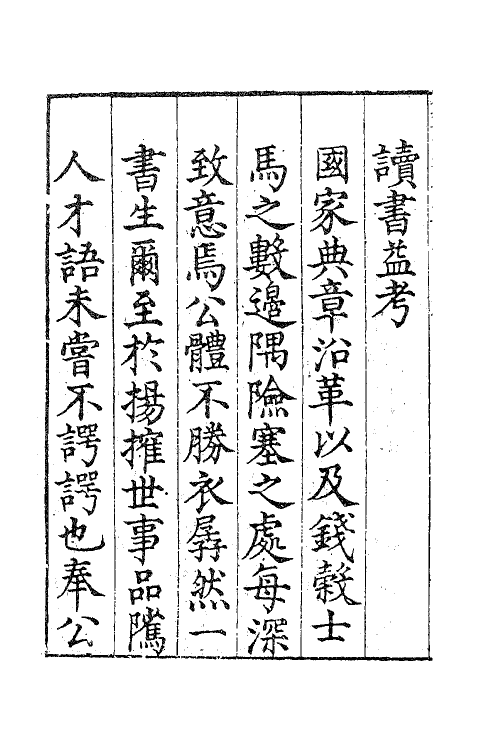 讀書益考
國家典章沿革以及錢穀士
馬之數邊隅險塞之處每深
致意焉公體不勝衣孱然一
書生爾至於揚搉世事品隲
人才語未嘗不諤諤也奉公